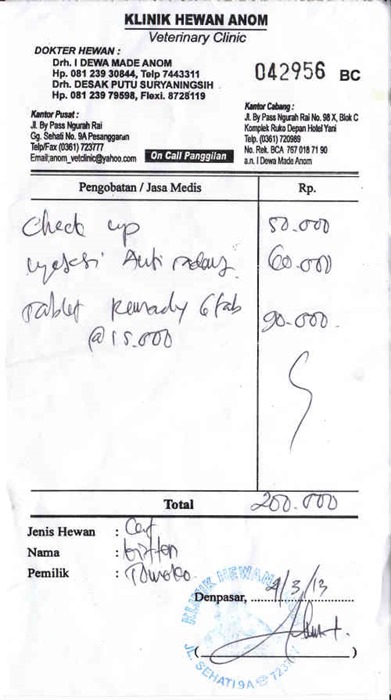 KLINIK HEWAN ANOM
Veterinary Clinic
DOKTER HEWAN :
Drh. I DEWA MADE ANOM
Hp. 081 239 30844, Telp 7443311
Drh. DESAK PUTU SURYANINGSIH
Hp. 081 239 79598, Flexi. 8725119
042956 BC
Kantor Pusat :
Jl. By Pass Ngurah Rai
Gg. Sehati No. 9A Pesanggaran
Telp/Fax (0361) 723777
Email;anom_vetclinic@yahoo.com
On Call Panggilan
Kantor Cabang :
Jl. By Pass Ngurah Rai No. 98 X, Blok C
Komplek Ruko Depan Hotel Yani
Telp. (0361) 720989
No. Rek. BCA 767 018 71 90
a.n. I Dewa Made Anom
Pengobatan / Jasa Medis Rp.
Check up 50.000
Anti 60.000
Tablet 6 tab 90.000
@ 15.000
Total 200.000
Jenis Hewan : Cat
Nama :
Pemilik :
KLINIK HEWAN
Denpasar, 4/3/13
JL. SEHATI 9A